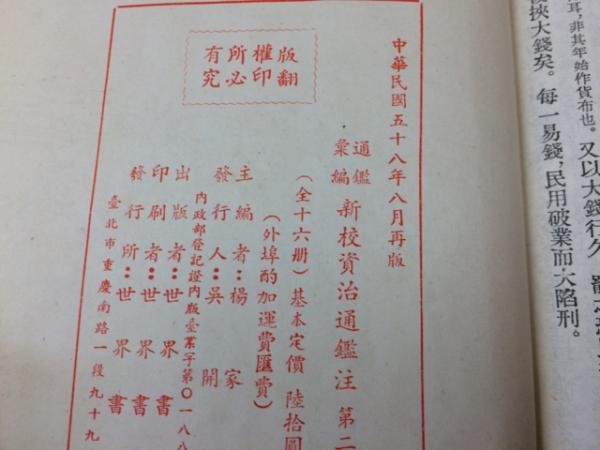 耳，非其年始作貨布也。又以大錢行久
挾大錢矣。每一易錢，民用破業而大陷刑。
版權所有
翻印必究
中華民國五十八年八月再版
通鑑
彙編
新校資治通鑑注 第二
（全十六册）基本定價 陸拾圓
（外埠酌加運費匯費）
主編者：楊家
發行人：吳開
內政部登記證內版臺業字第〇一八
出版者：世界書
印刷者：世界書
發行所：世界書
臺北市重慶南路一段九十九